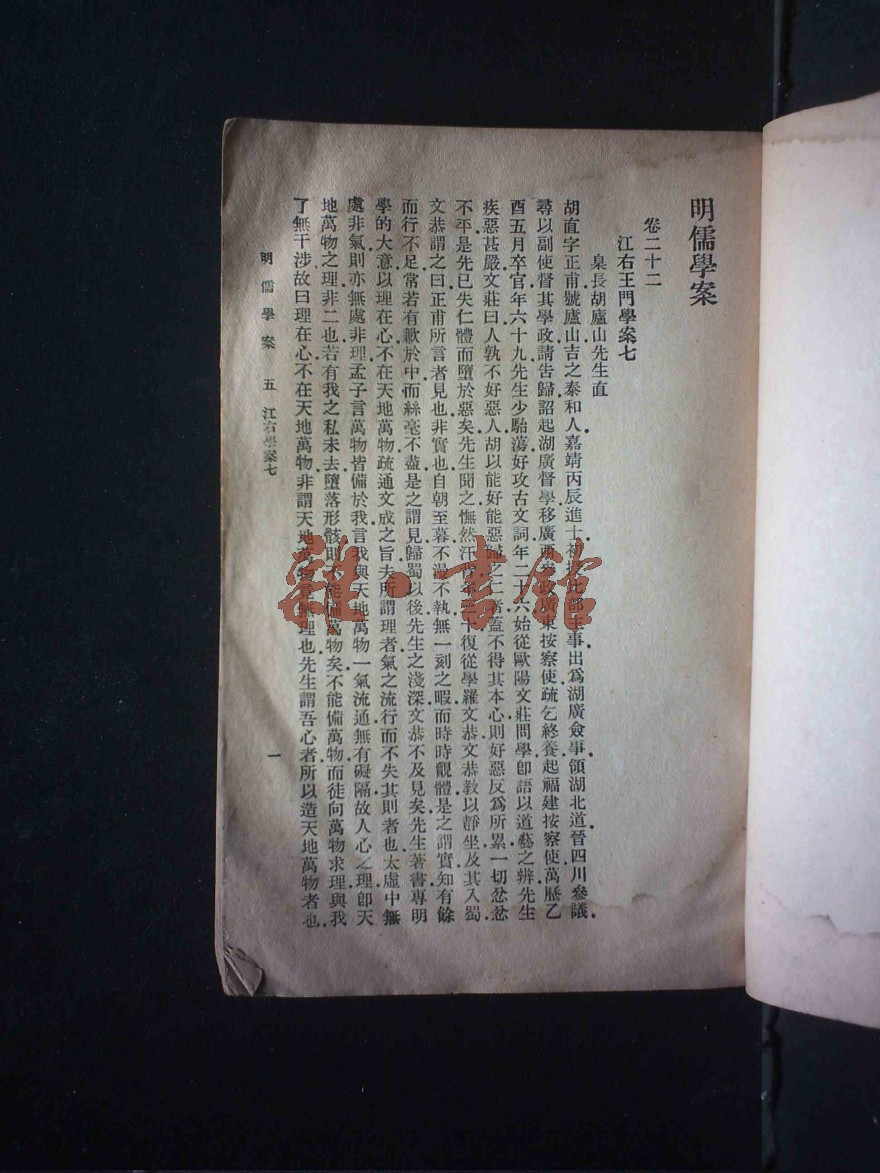 明儒學案
卷二十二
江右王門學案七
臬長胡廬山先生直
胡直字正甫號廬山吉之泰和人嘉靖丙辰進士初授比部主事出爲湖廣僉事領湖北道晉四川參議
尋以副使督其學政請吿歸詔起湖廣督學移廣西參政廣東按察使疏乞終養起福建按察使萬曆乙
酉五月卒官年六十九先生少駘蕩好攻古文詞年二十六始從歐陽文莊問學卽語以道藝之辨先生
疾惡甚嚴文莊曰人孰不好惡人胡以能好能惡歸之仁者蓋不得其本心則好惡反爲所累一切忿忿
不平是先已失仁體而墮於惡矣先生聞之憮然汗背年三十復從學羅文恭文恭敎以靜坐及其入蜀
文恭謂之曰正甫所言者見也非實也自朝至暮不漫不執無一刻之暇而時時覿體是之謂實知有餘
而行不足常若有歉於中而絲毫不盡是之謂見歸蜀以後先生之淺深文恭不及見矣先生著書專明
學的大意以理在心不在天地萬物疏通文成之旨夫所謂理者氣之流行而不失其則者也太虛中無
處非氣則亦無處非理孟子言萬物皆備於我言我與天地萬物一氣流通無有礙隔故人心之理卽天
地萬物之理非二也若有我之私未去墮落形骸則不能備萬物矣不能備萬物而徒向萬物求理與我
了無干涉故曰理在心不在天地萬物非謂天地萬物竟無理也先生謂吾心者所以造天地萬物者也
明儒學案 五 江右學案七
一
雜·書館